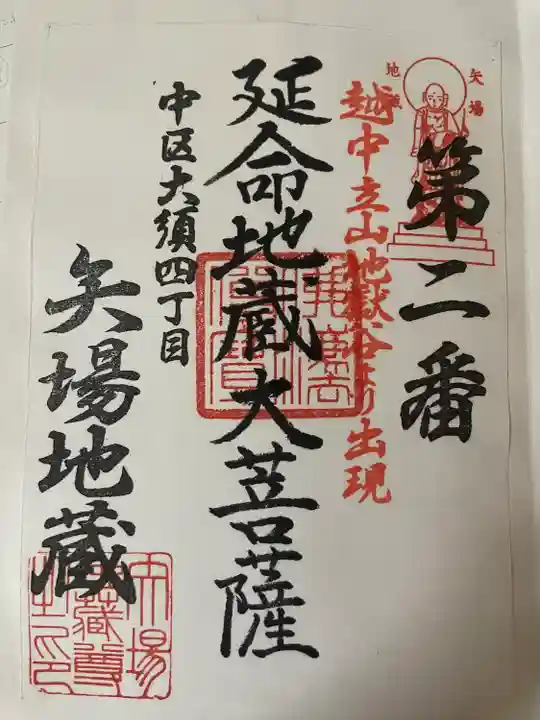 矢場
地蔵
第二番
越中立山地獄谷より出現
延命地蔵大菩薩
佛法僧寳
中区大須四丁目
矢場地蔵